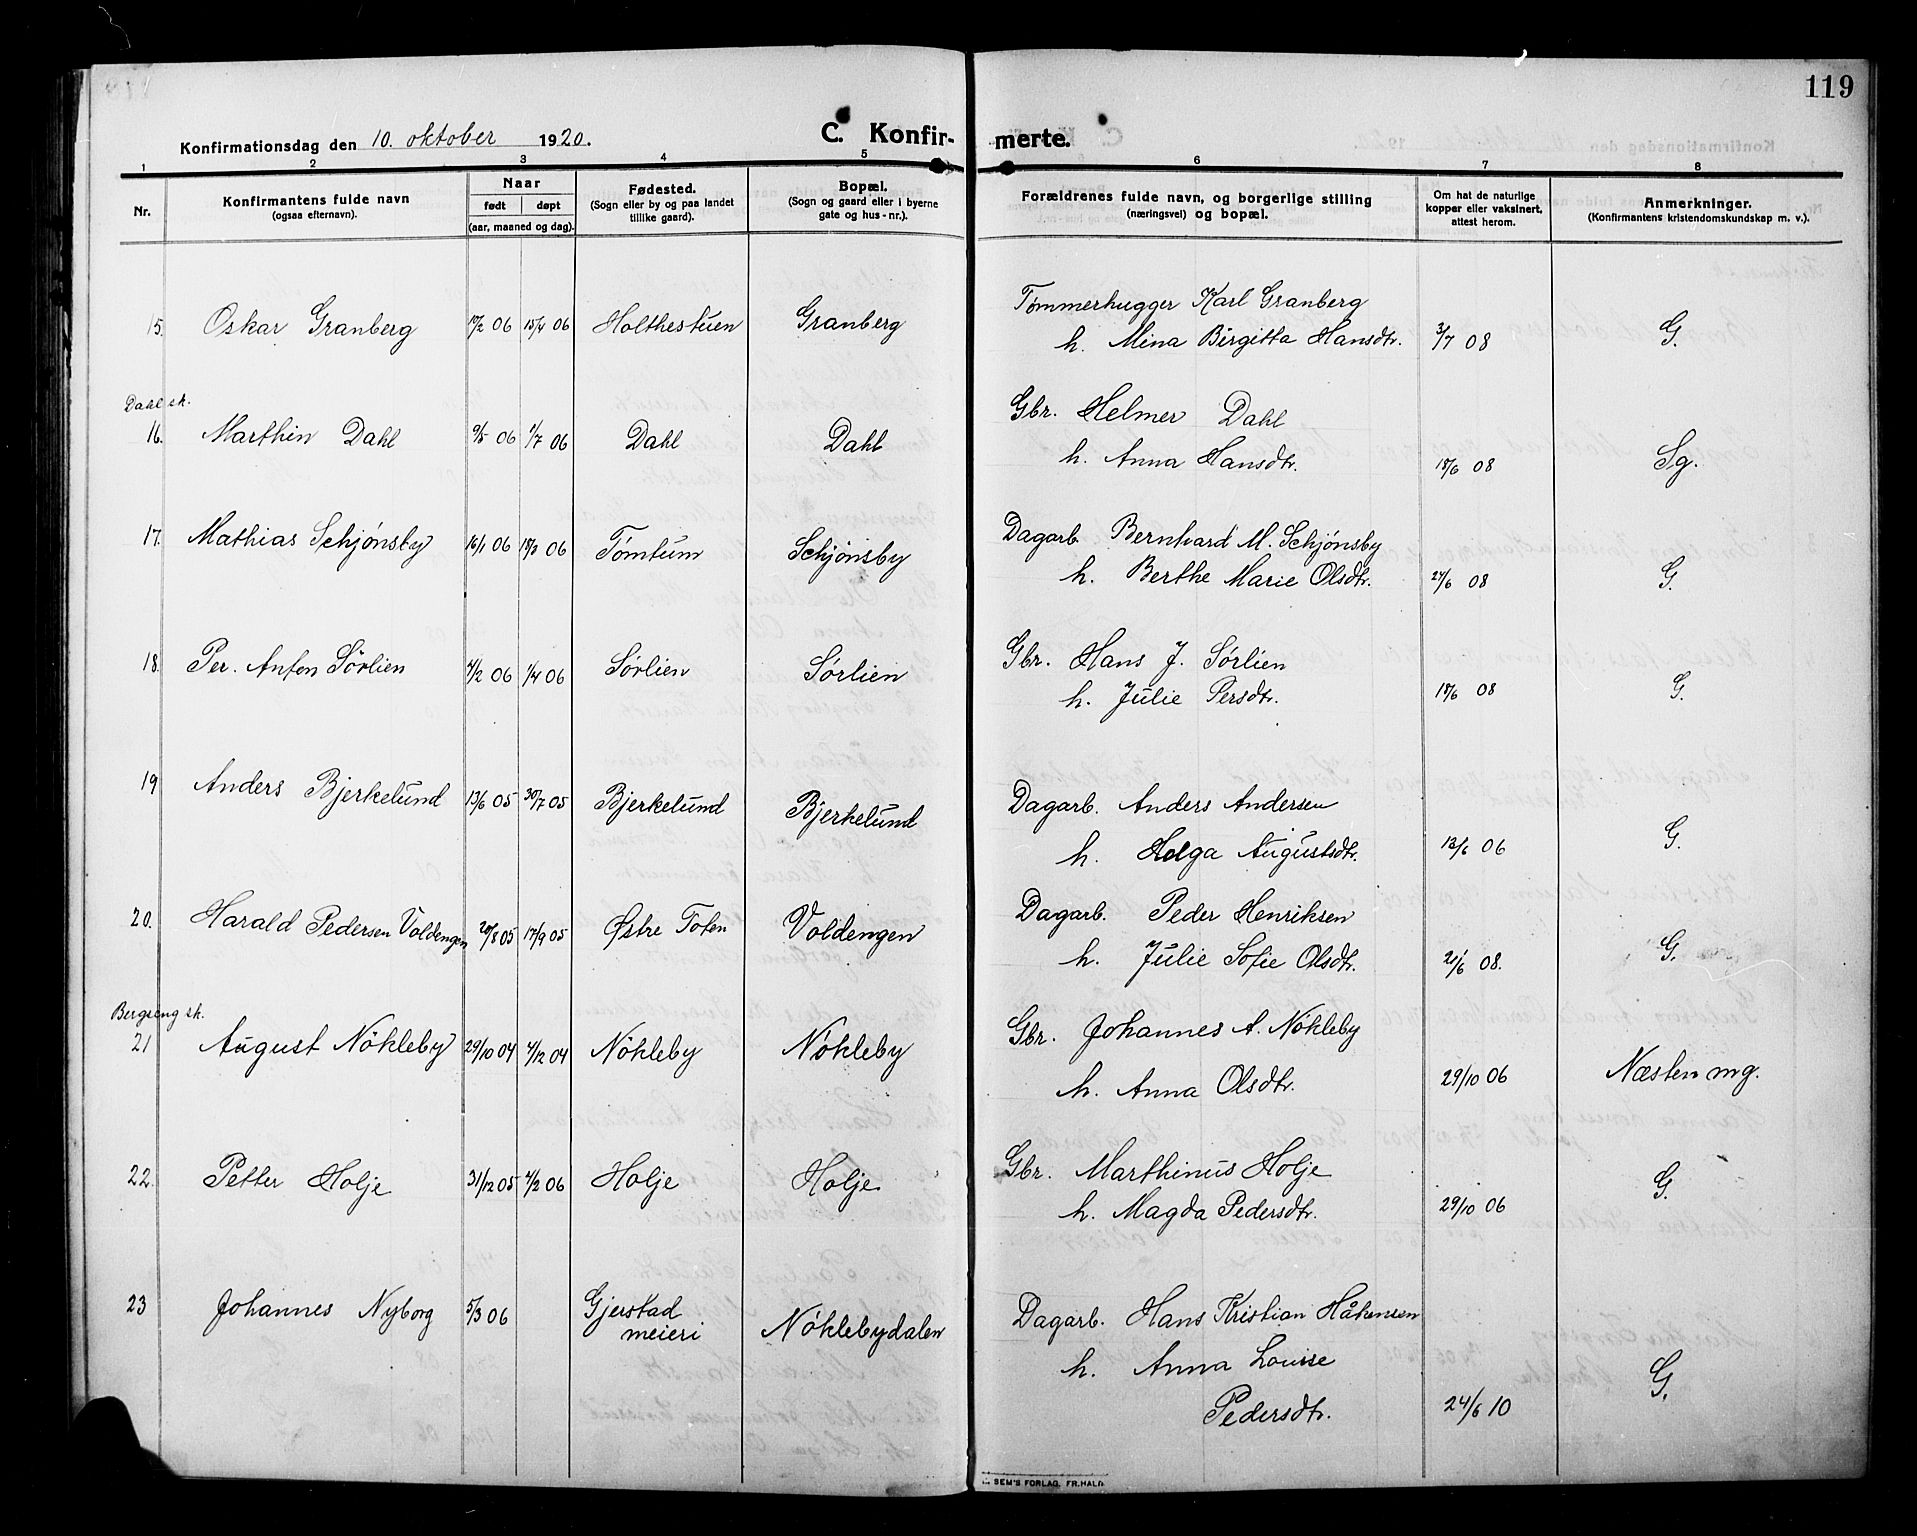 119
Konfirmationsdag den 10. oktober 1920.
C. Konfir- merte.
1 2 3 4 5 6 7 8
Nr.
Konfirmantens fulde navn
(ogsaa efternavn).
Naar
født døpt
(aar, maaned og dag).
Fødested.
(Sogn eller by og paa landet
tillike gaard).
Bopæl.
(Sogn og gaard eller i byerne
gate og hus-nr.).
Forældrenes fulde navn, og borgerlige stilling
(næringsvei) og bopæl.
Om hat de naturlige
kopper eller vaksinert,
attest herom.
Anmerkninger.
(Konfirmantens kristendomskundskap m. v.).
Tømmerhugger Karl Granberg
15. Oskar Granberg 06 15/4 06 Holthestuen Granberg
h. Mina Birgitta Hansdtr. 3/7 08 G.
Dahl sk.
16. Marthin Dahl 9/5 06 1/7 06 Dahl Dahl
Gbr. Helmer Dahl
h. Anna Hansdtr. 18/6 08 Sg.
17. Mathias Schjønsby 16/1 06 18/3 06 Tømtum Schjønsby
Dagarb. Bernhard M. Schjønsby
h. Berthe Marie Olsdtr. 24/6 08 G.
18. Per. Anton Sörlien 4/2 06 1/4 06 Sørlien Sørlien
Gbr. Hans J. Sørlien
h. Julie Persdtr. 18/6 08 G.
19 Anders Bjerkelund 13/6 05 30/7 05 Bjerkelund Bjerkelund
Dagarb. Anders Andersen
h. Helga Augustsdtr. 13/6 06 G.
20. Harald Pedersen Voldengen 20/8 05 17/9 05 Østre Toten Voldengen
Dagarb. Peder Henriksen
h. Julie Sofie Olsdtr. 21/6 08. G.
Bergseng sk.
21 August Nökleby 29/10 04 4/12 04 Nökleby Nökleby
Gbr. Johannes A. Nökleby
h. Anna Olsdtr. 29/10 06 Næsten mg.
22. Petter Holje 31/12 05 4/2 06 Holje Holje
Gbr. Marthinus Holje
h. Magda Pedersdtr. 29/10 06 G.
23 Johannes Nyborg 5/3 06 Gjerstad
meieri Nöklebydalen
Dagarb. Hans Kristian Håkensen
h. Anna Louise
Pedersdtr. 24/6 10 G.
SEM'S FORLAG, FR.HALD.